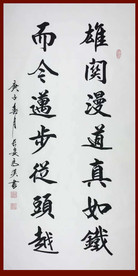 雄関漫道真如鐵
而今邁步從頭越